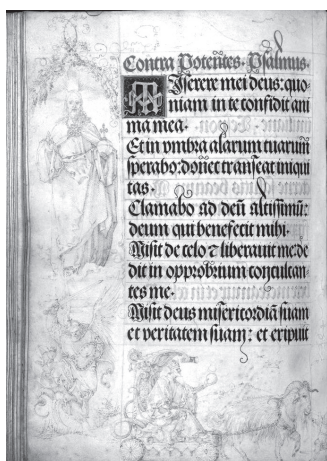 Contra Potentes. Psalmus.
Miserere mei deus: quo
niam in te confidit ani
ma mea.
Et in vmbra alarum tuarum
sperabo: donec transeat iniqui
tas.
Clamabo ad deū altissimū:
deum qui benefecit mihi.
Misit de celo ⁊ liberauit me: de
dit in opprobrium conculcan-
tes me.
Misit deus misericordiā suam
et veritatem suam: et eripuit